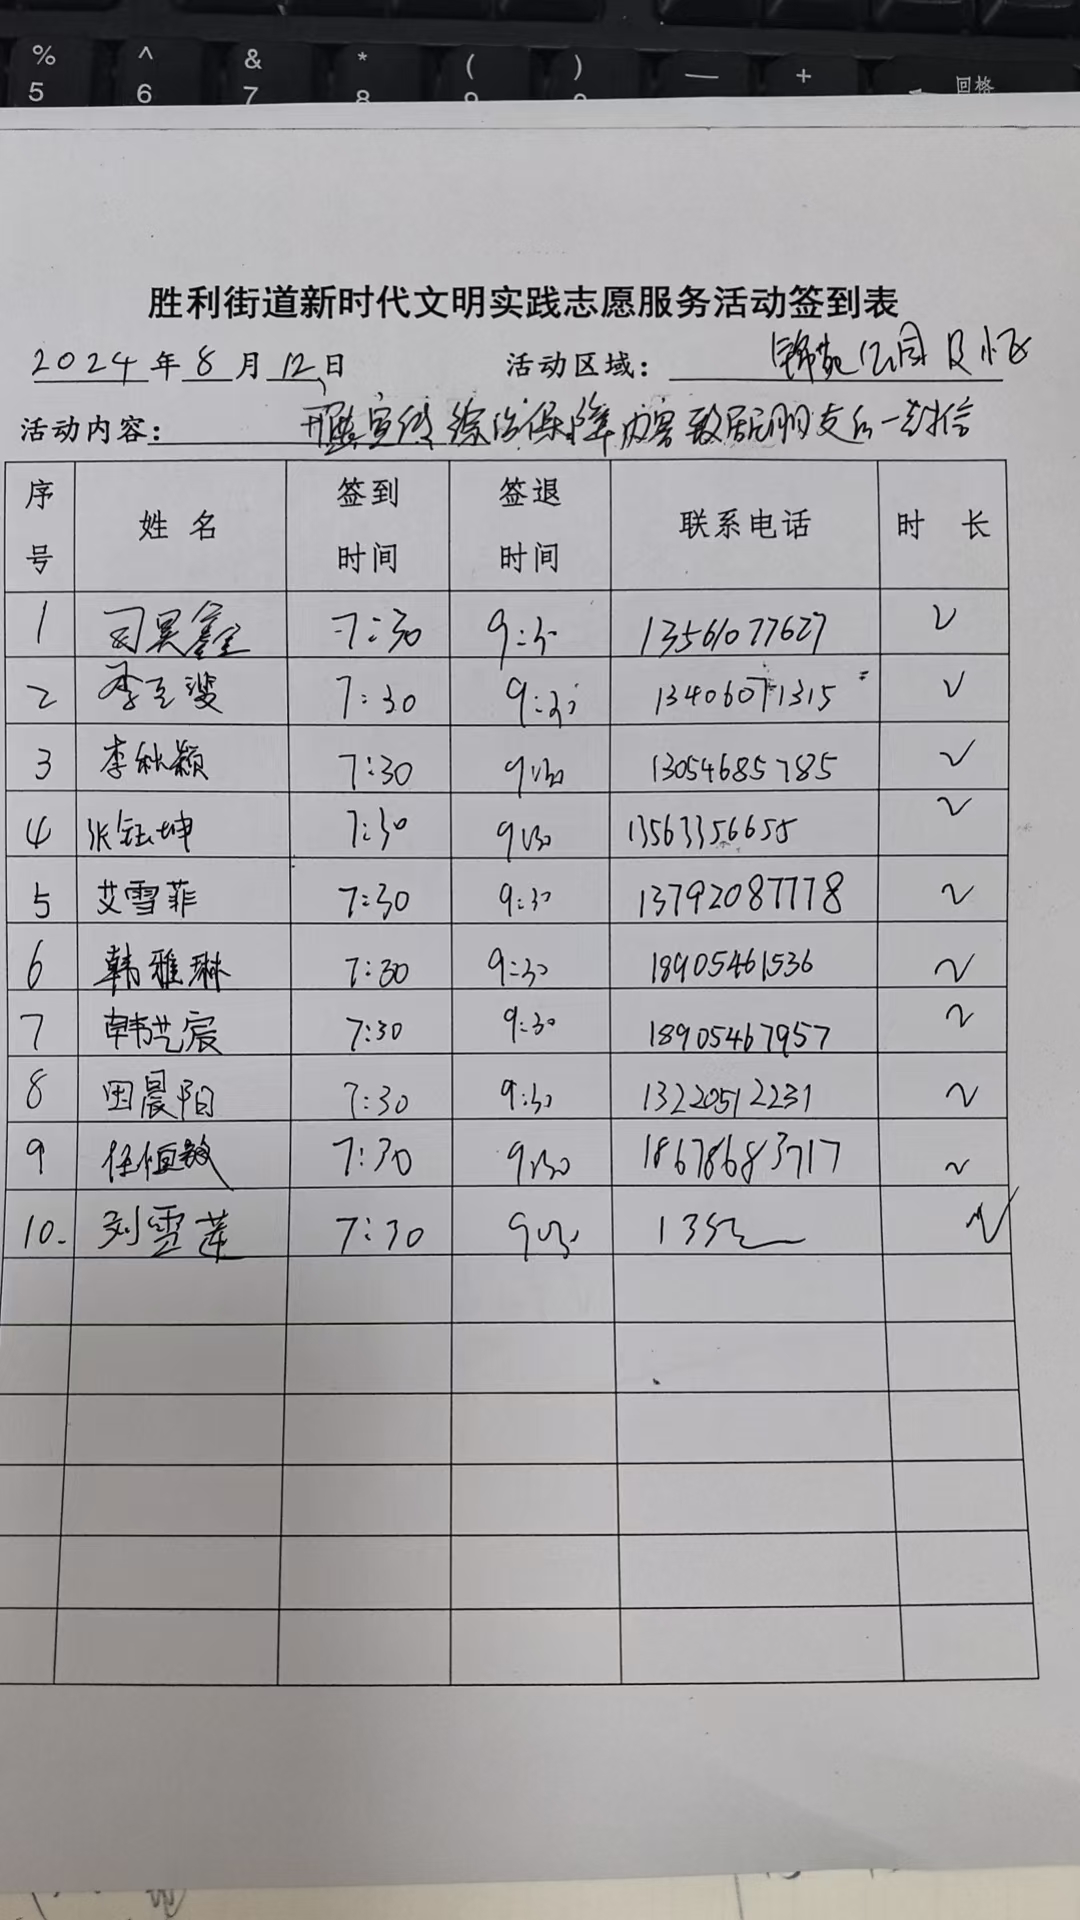 % ^ & * ( ) — +
5 6 7 8 9 0 回格
胜利街道新时代文明实践志愿服务活动签到表
2024年8月12日 活动区域：锦苑公园及小区
活动内容： 宣传综治保障内容致居民朋友的一封信
序号 姓名 签到时间 签退时间 联系电话 时长
1 司昊鑫 7:30 9:30 13561077627 √
2 李 7:30 9:30 13406071315 √
3 李秋颖 7:30 9:30 13054685785 √
4 张钰坤 7:30 9:30 13563356658 √
5 艾雪菲 7:30 9:30 13792087778 √
6 韩雅琳 7:30 9:30 18905461536 √
7 韩艺宸 7:30 9:30 18905467957 √
8 田晨阳 7:30 9:30 13220512231 √
9 任恒毅 7:30 9:30 18678683717 √
10. 刘雪莲 7:30 9:30 135 √